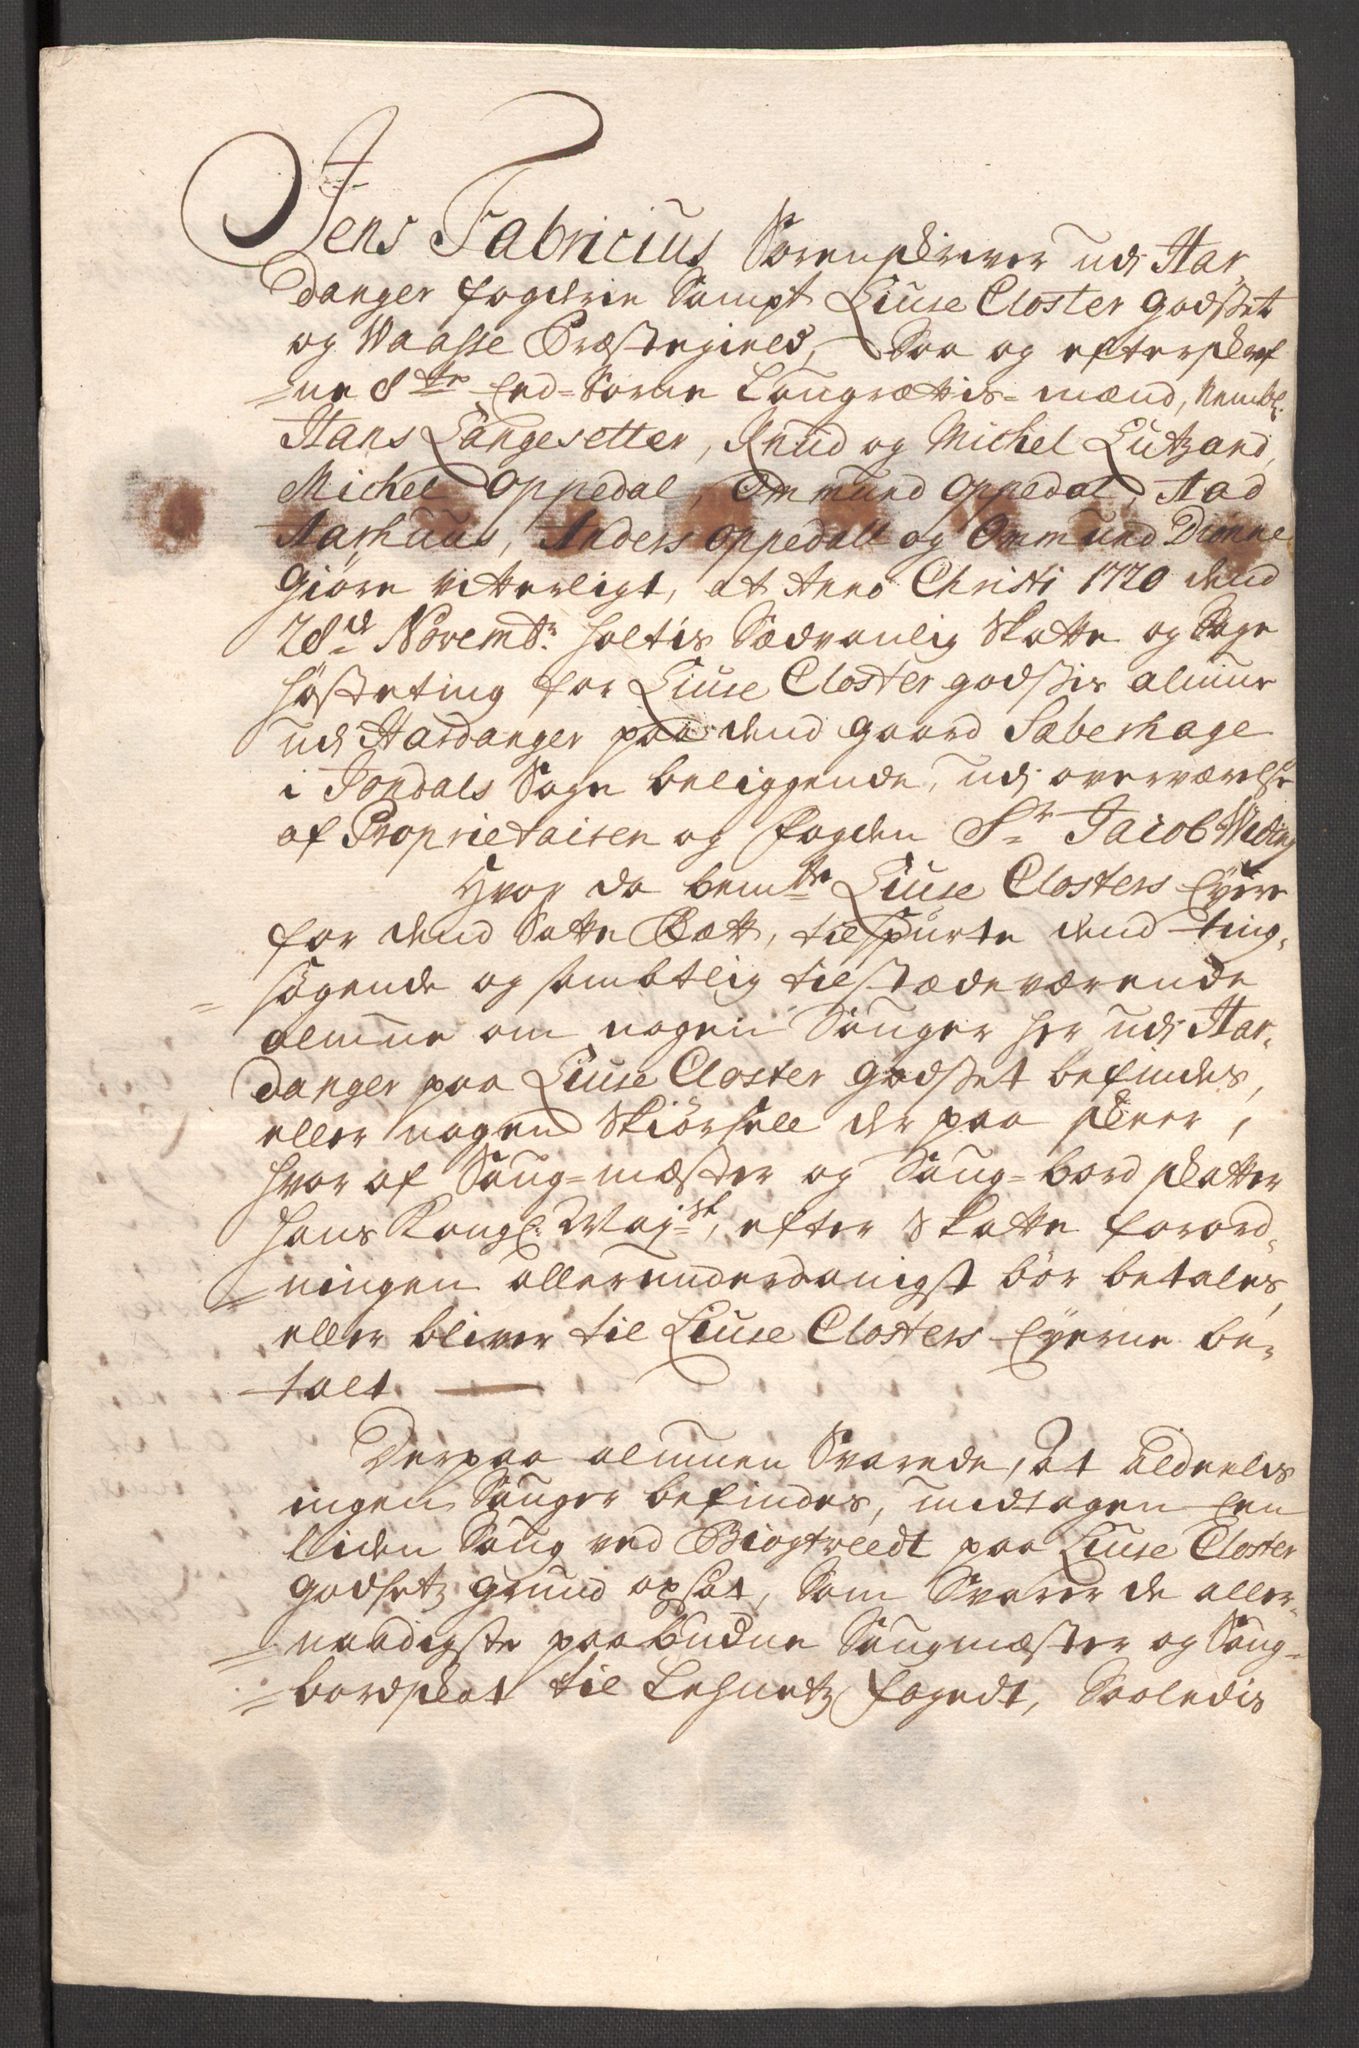 Jens Fabricius Sorenskriver udj Har-
danger fogderie Sampt Liuse Closter Godsset
og Waasse Præstegield, Saa og efterskref
-ne 8te Eed-Sorne Laugrættis-mænd, Nembl:
Hans Langesetter, Knud og Michel Lutzand,
Michel Oppedal, Ommund Oppedal, Aad
Aarhuus, Anders Oppedall og Ommund Dimne
Giöre vitterligt, at Anno Christi 1720 dend
28de Novembr: holtis Sædvanlig Skatte og Sage
höste ting for Liuse Closter godssis almue
udj Hardanger paa dend gaard Saberhage
i Jondals Sogn beliggende, udj overværelse
af Proprietairen og fogden Sr Jacob Widing
Hvor da bemte Liuse Closters Eyere
for dend Satte Rætt, tilspurte dend ting-
=sögende og samtlig tilstædeværende
almue om nogen Sauger her udj Har-
danger paa Liuse Closter Godsset befindes,
eller nogen Skiörsell der paa skeer,
hvor af Saug-mæster og Saug-bord skatter
hans Kongl: Majst, efter Skatte forord-
=ningen allerunderdanigst bör betales,
eller bliver til Liuse Closters Eyerne be-
-talt
Derpaa almuen Svarede, At aldeelis
ingen Sauger befindes, undtagen Een
liden Saug ved Biogtveedt paa Liuse Closter
godsetz grund opsat, Som Svarer de aller-
=naadigste paabudne Saugmæster og Saug-
=bordskat til Lehnetz fogedt, Saaledis